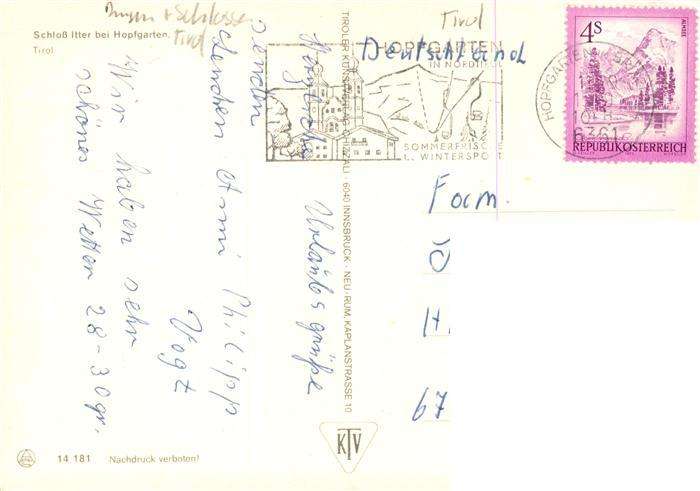 Burgen + Schlösser
Tirol
Schloß Itter bei Hopfgarten.
Tirol
Tirol
Herzliche Urlaubsgrüße
senden
Philipp
Vogt
Wir haben sehr
schönes Wetter 28-30 gr.
14 181 Nachdruck verboten!
TIROLER KUNSTVERLAG CHIZZALI · 6040 INNSBRUCK · NEU-RUM, KAPLANSTRASSE 10
KTV
HOPFGARTEN
IN NORDTIROL
SOMMERFRISCHE
U. WINTERSPORT
HOPFGARTEN
6361
4S
REPUBLIK ÖSTERREICH
Deutschland
Fam.
H.
67